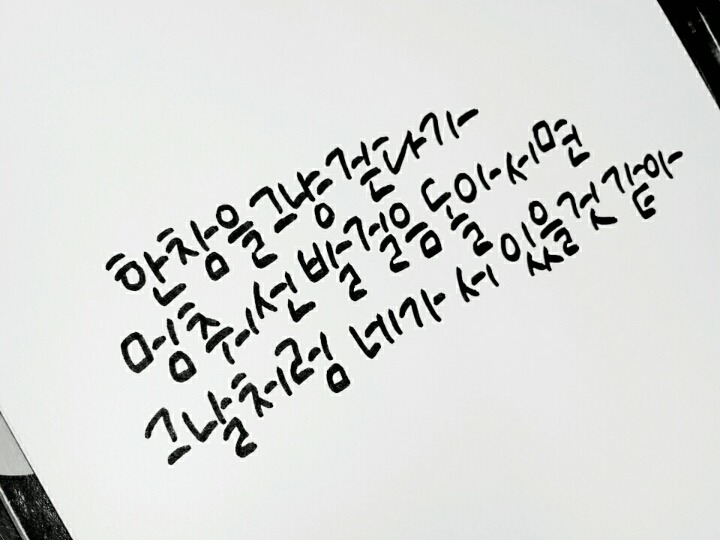 한참을 그냥 걷다가
멈춰선 발걸음 돌아서면
그날처럼 네가 서 있을 것 같아